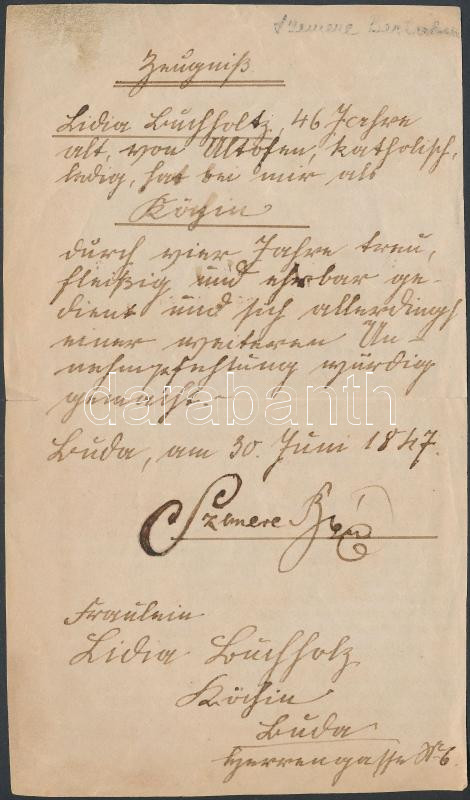 Szemere
Zeugniß
Lidia Buchholtz, 46 Jahre
alt, von Altofen, katholisch,
ledig, hat bei mir als
Köchin
durch vier Jahre treu,
fleißig und ehrbar ge-
dient und sich allerdings
einer weiteren An-
nehmpfehlung würdig
gemacht.
darabanth
Buda, am 30. Juni 1847.
Szemere
Fraulein
Lidia Buchholz
Köchin
Buda
Herrengasse No 6.